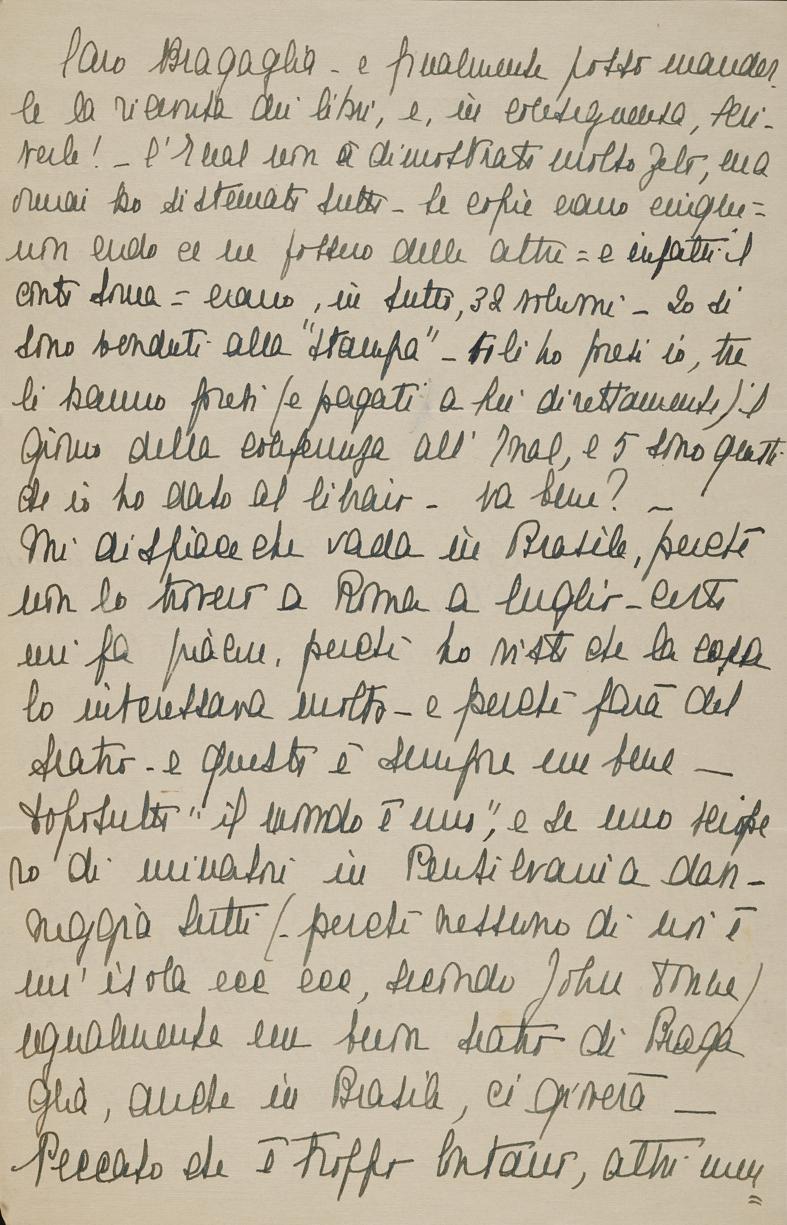 Caro Bragaglia - e finalmente posso mandar-
le la ricevuta dei libri, e, in conseguenza, scri-
verle! - l'Enal non à dimostrato molto zelo, ma
ormai ho sistemato tutto - le copie erano cinque =
non credo ce ne fossero delle altre = e infatti il
conto torna = erano, in tutto, 32 volumi - 20 si
sono venduti alla "Stampa" - li ho presi io, tre
li hanno presi (e pagati a lei direttamente) il
giorno della conferenza all'Enal, e 5 sono questi
che io ho dato al libraio - va bene? -
Mi dispiace che vada in Brasile, perchè
non lo troverò a Roma a luglio - certo
mi fa piacere, perchè ho visto che la cosa
lo interessava molto - e perchè farà del
teatro - e questo è sempre un bene -
dopotutto "il mondo è uno", e se uno sciope
ro di minatori in Pensilvania dan-
neggia tutti (- perchè nessuno di noi è
un'isola ecc ecc, secondo John Donne)
ugualmente un buon teatro di Braga
glia, anche in Brasile, ci gioverà -
Peccato che è troppo lontano, altri men